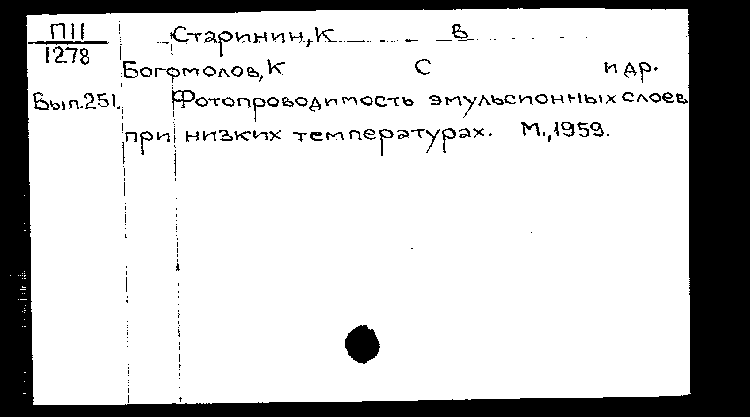 П11 Старинин, К В
1278
Богомолов, К С и др.
Вып. 251. Фотопроводимость эмульсионных слоев
при низких температурах. М., 1959.